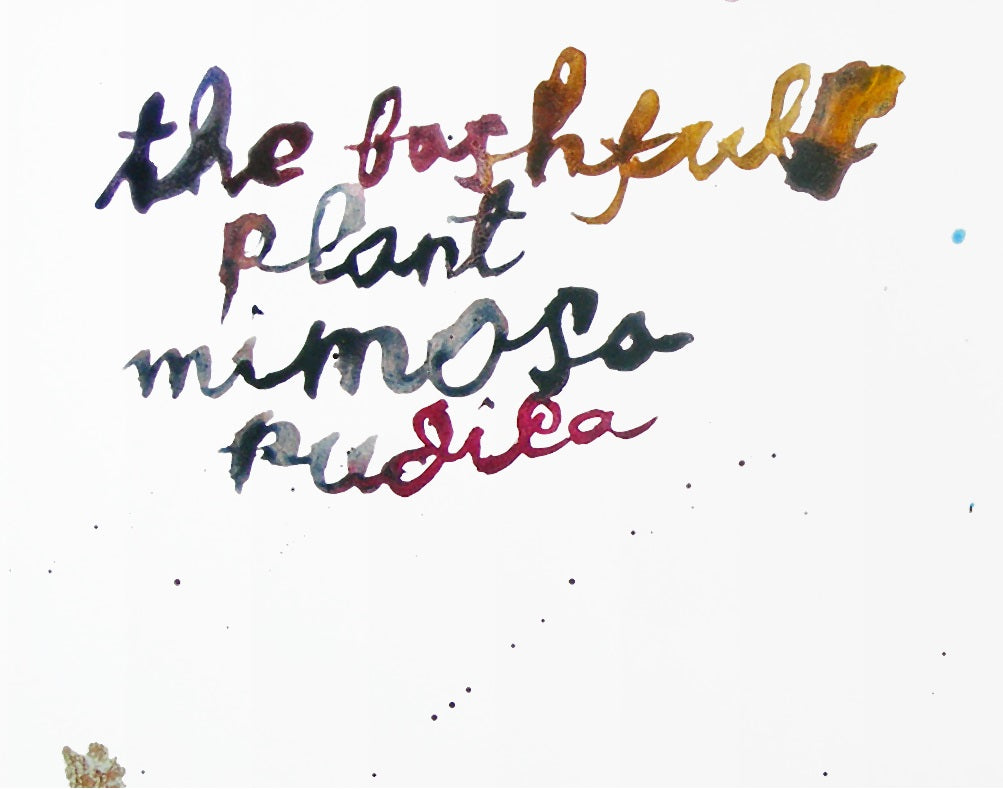 the bashful
plant
mimosa
pudica